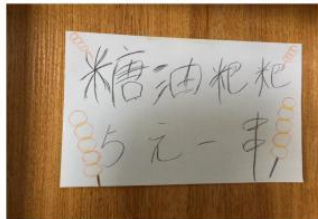 糖油粑粑
5元一串